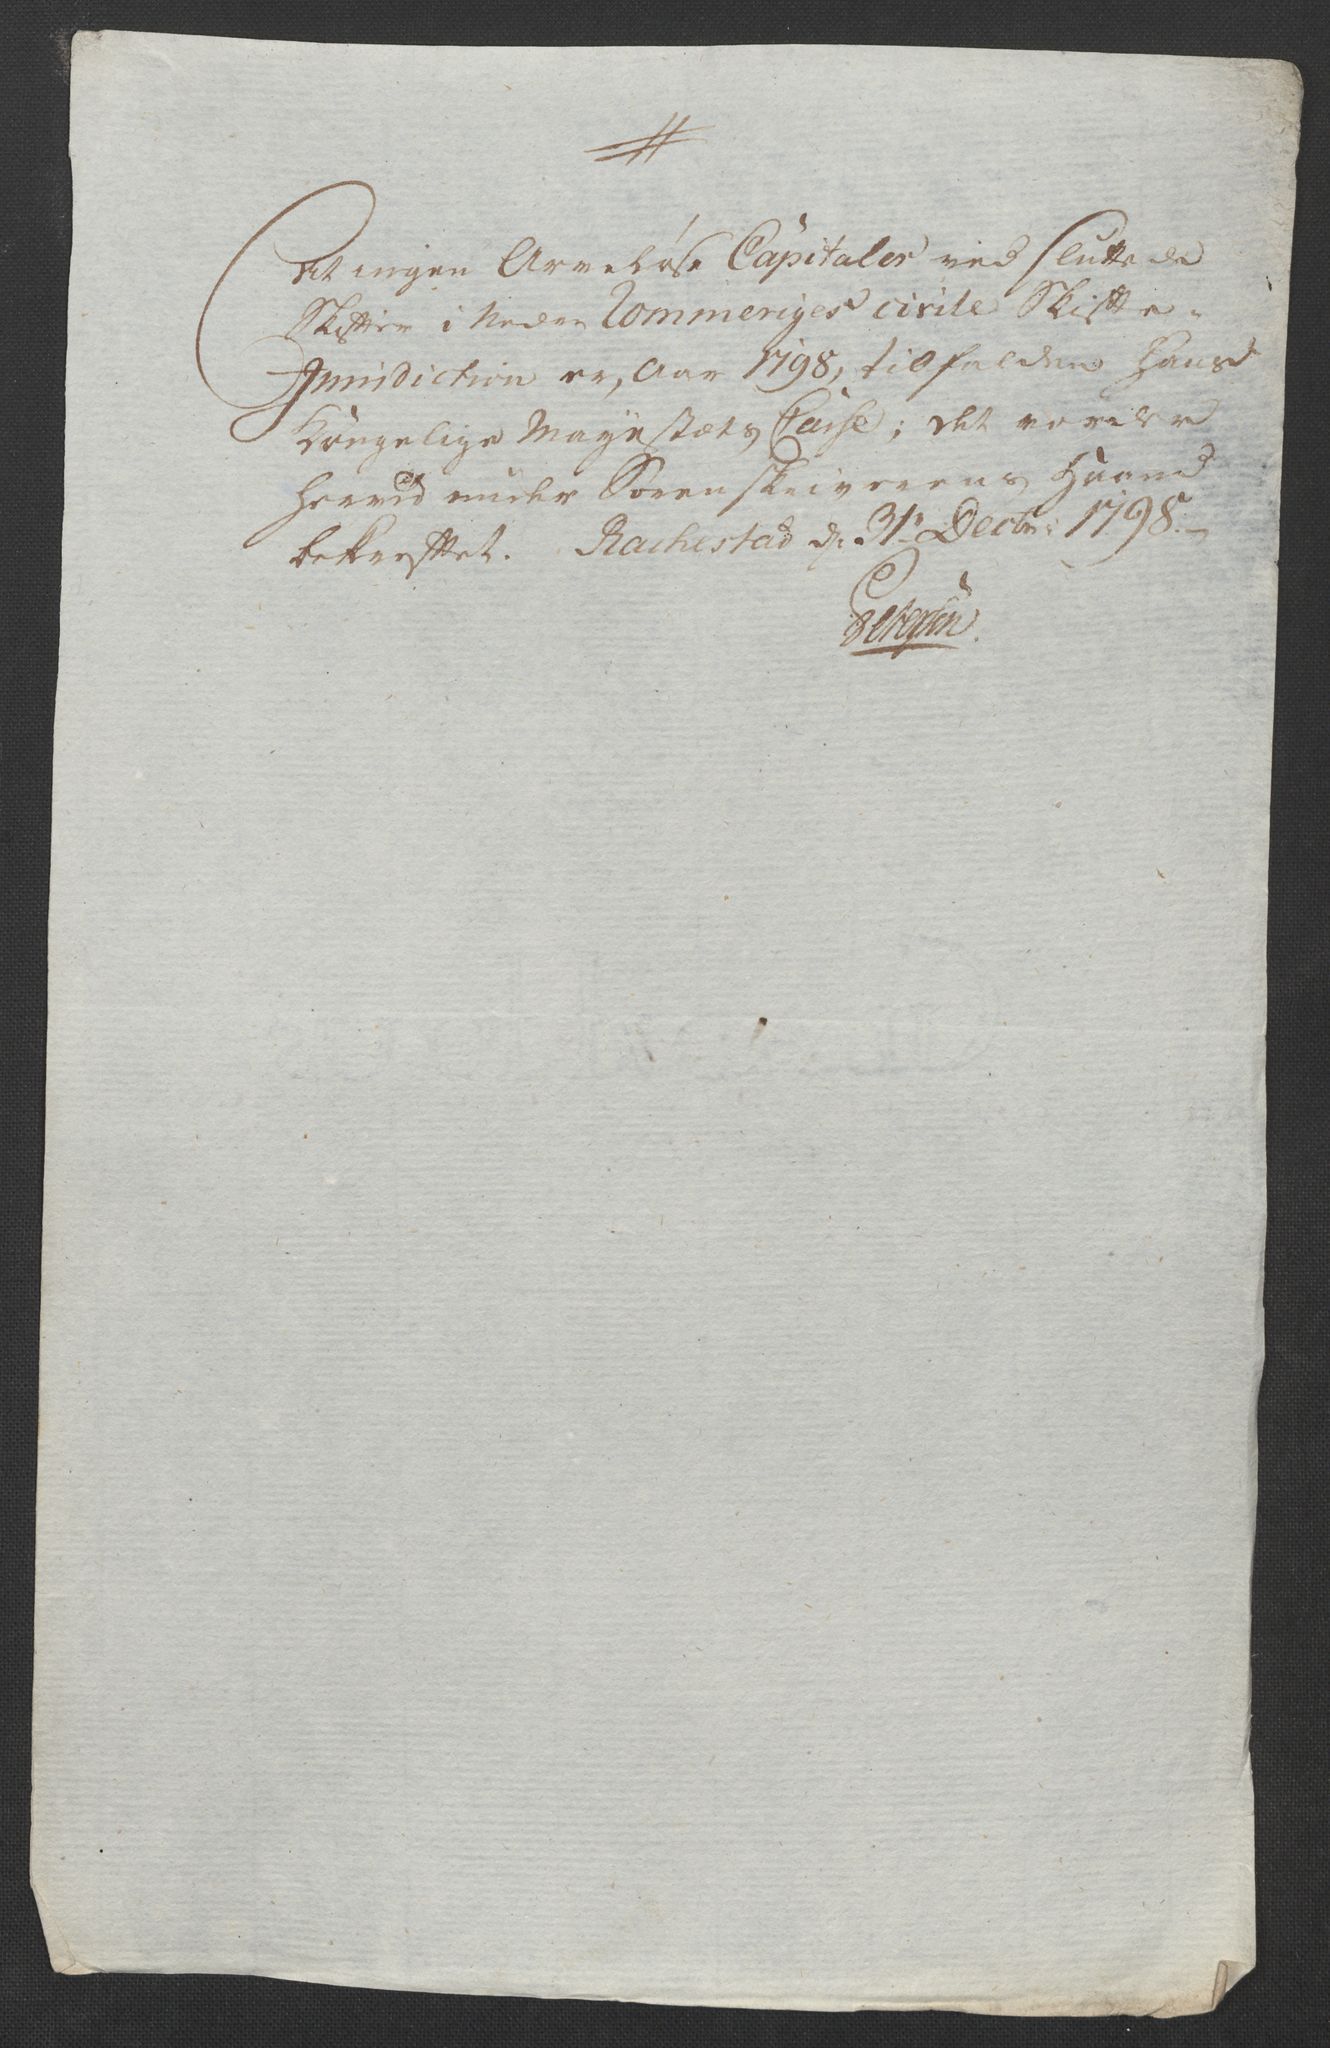 At ingen Arveløse Capitaler ved sluttede
Skifter i Neden Rommeriges civile Skifte-
Jurisdiction er, Aar 1798, tilfalden Hans
Kongelige Mayestæts Casse; det vorder
herved under Sorenskriverens Haand
bekræfftet. Rachestad d. 31te Decbr: 1798.